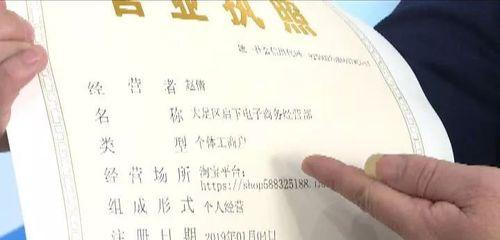 营业执照
统一社会信用代码
经营者 赵倩
名称 大足区启下电子商务经营部
类型 个体工商户
经营场所 淘宝平台：
https://shop588325188.
组成形式 个人经营
注册日期 2019年01月04日